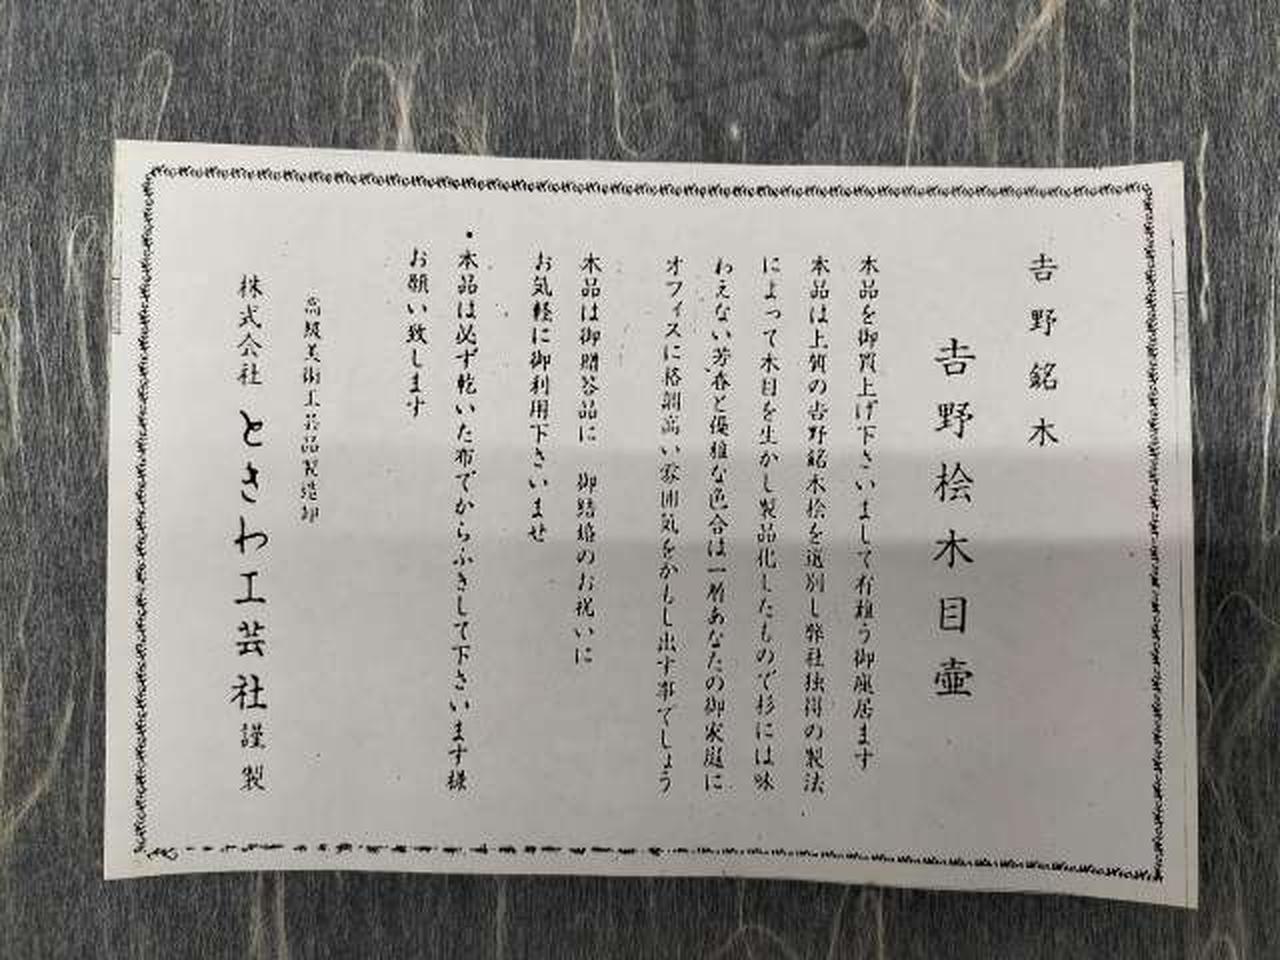 吉野銘木
吉野桧木目壷
本品を御買上げ下さいまして有難う御座居ます
本品は上質の吉野銘木桧を選別し弊社独得の製法
によって木目を生かし製品化したもので杉には味
わえない芳香と優雅な色合は一層あなたの御家庭に
オフィスに格調高い雰囲気をかもし出す事でしょう
本品は御贈答品に 御結婚のお祝いに
お気軽に御利用下さいませ
・本品は必ず乾いた布でからぶきして下さいます様
お願い致します
高級美術工芸品製造卸
株式会社 とさわ工芸社 謹製